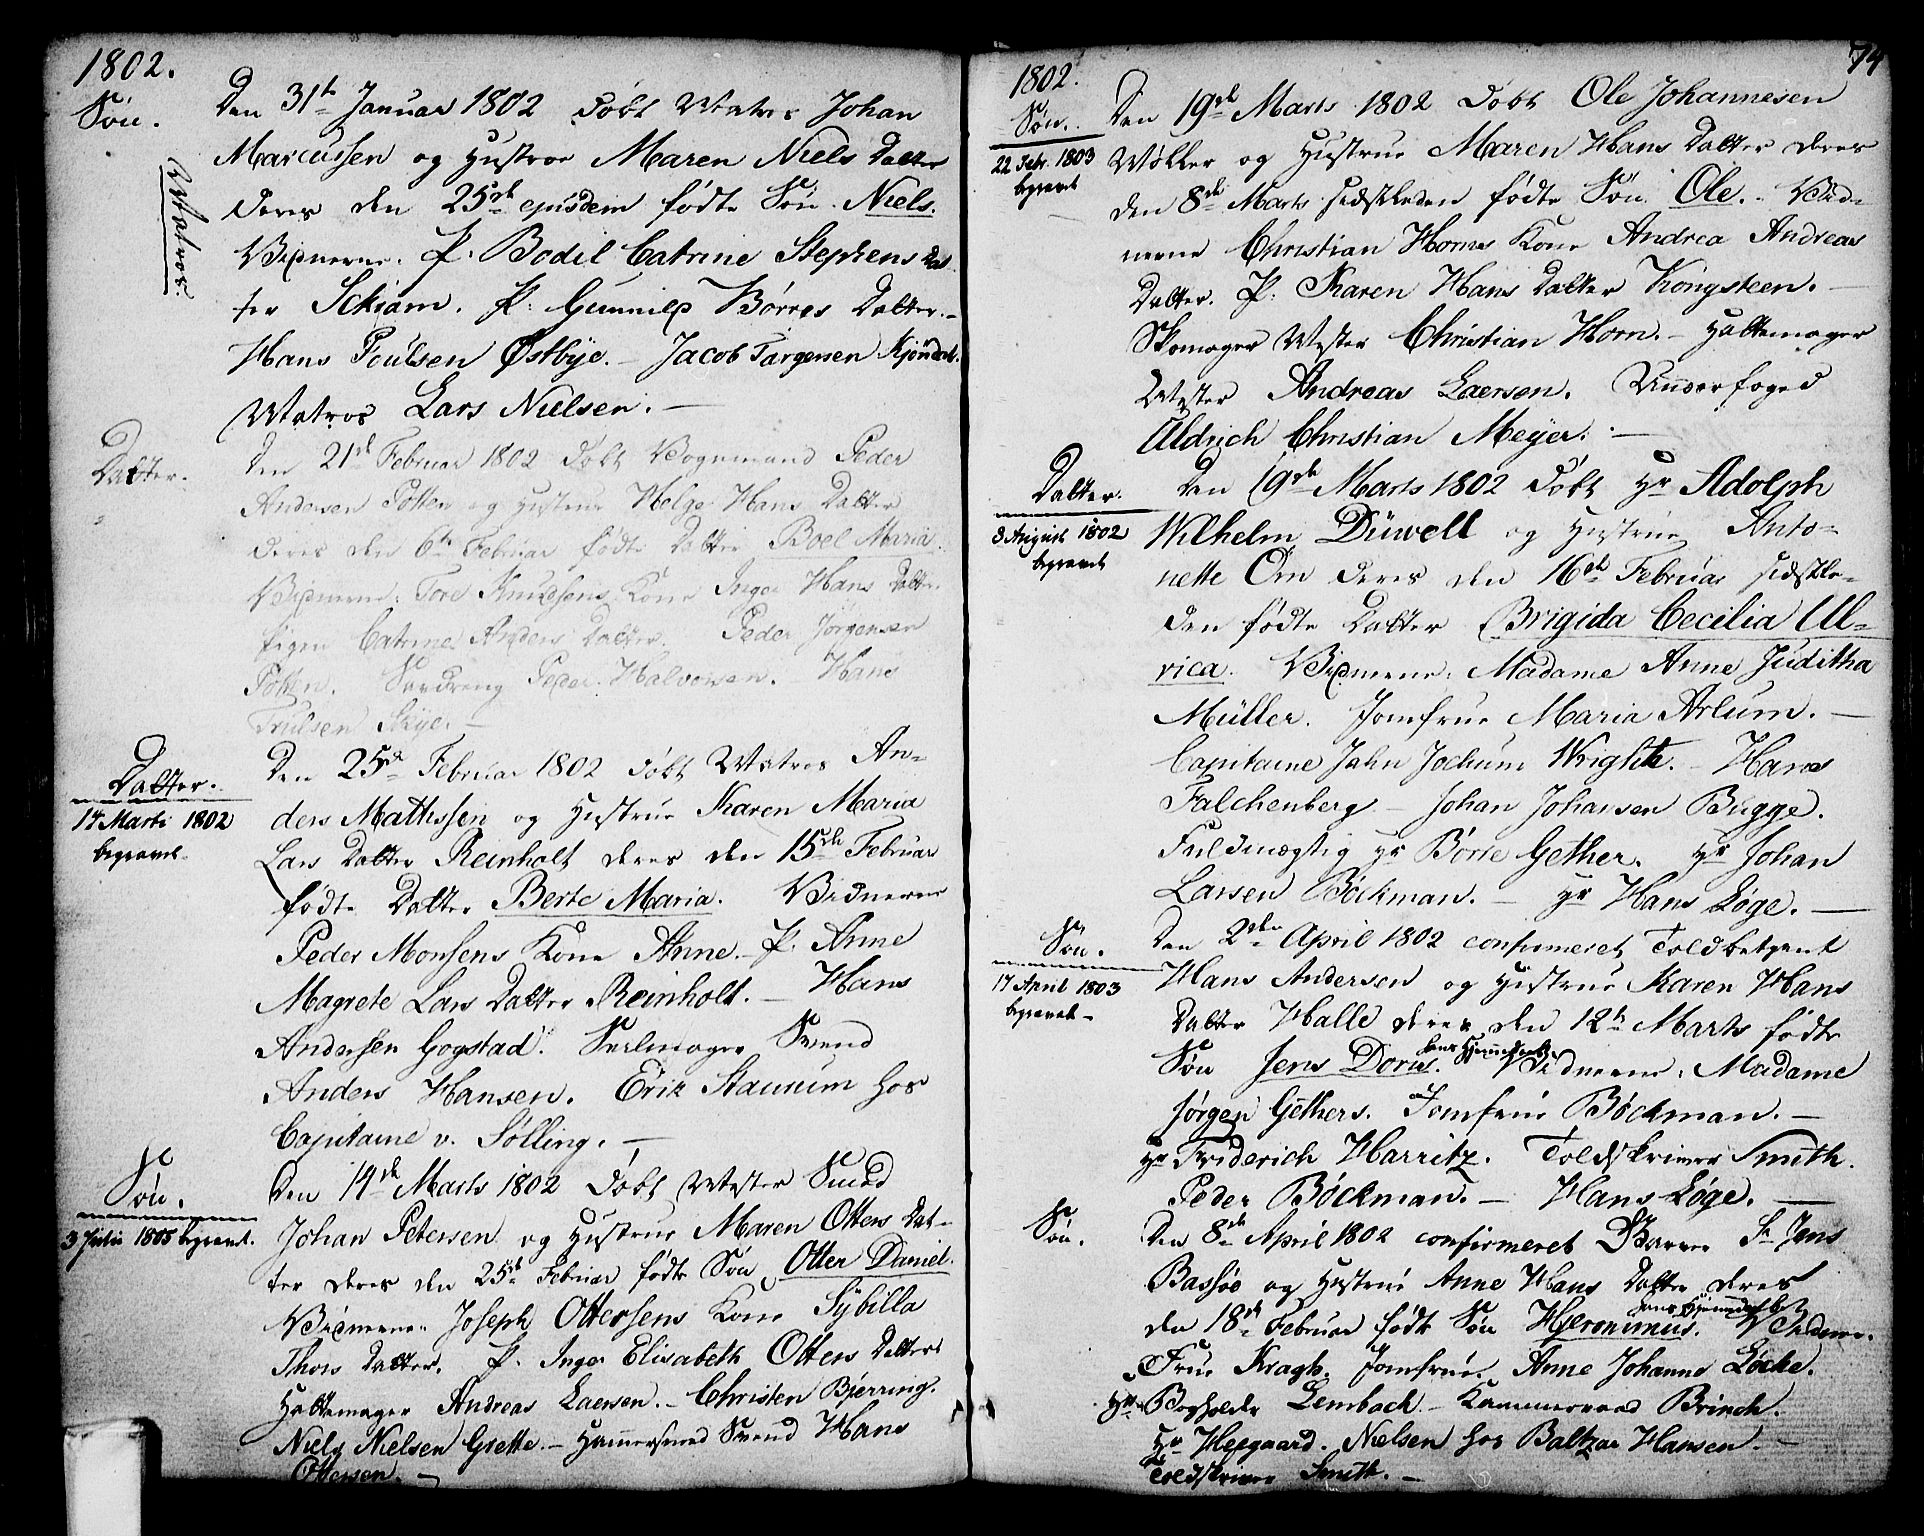 1802.
Søn.
Matros.
Den 31te Januar 1802 døbt Matros Johan
Marcussen og Hustrue Maren Niels Datter
deres den 25de ejusdem fødte Søn Niels.
Vidnerne. P. Bodil Catrine Stephens Dat
ter Schiam. P: Gunnild Børres Datter.-
Hans Poulsen Østbye.- Jacob Targersen Kjøndal.
Matros Lars Nielsen.-
Datter.
Den 21de Februar 1802 døbt Peder
Andersen Potten og Hustrue Helge Hans Datter
deres den 6te Februar fødte Datter Boel Maria.
Vidnerne: Tore Knudsens Kone Inger Hans Datter.
Pigen Catrine Anders Datter. Peder Jørgensen
Potten. Peder Halvorsen. Hans
Trulsen Skye.-
Datter.
14 Marti 1802
begravet.
Den 25de Februar 1802 døbt Matros An-
ders Mathssen og Hustrue Karen Maria
Lars Datter Reinholt deres den 15de Februar
fødte Datter Berte Maria. Vidnerne
Peder Monsens Kone Anne.- P. Anne
Magrete Lars Datter Reinholt.- Hans
Andersen Gogstad. Seilmager Svend
Anders Hansen. Erik Staurum hos
Capitaine v. Sølling.-
Søn.
3 Julii 1805 begravet.
Den 14de Marts 1802 døbt Mester Smed
Johan Petersen og Hustrue Maren Ottens Dat-
ter deres den 25de Februar fødte Søn Otter Daniel.
Vidnerne. Joseph Ottersens Kone Sybilla
Thors Datter. P. Inger Elisabeth Ottens Datter
Hattemager Andreas Laersen.- Christen Bjerring.
Niels Nielsen Grette.- Hammersmed Svend Hans
Ottersen.-
74
1802.
Søn.
22 Febr. 1803
begravet
Den 19de Marts 1802 døbt Ole Johannesen
Møller og Hustrue Maren Hans Datter deres
den 8de Marts sidstleden fødte Søn Ole.- Vid-
nerne Christian Horns Kone Andrea Andreas
Datter. P. Karen Hans Datter Kongsteen.-
Skomager Mester Christian Horn.- Hattemager
Mester Andreas Laersen. Underfoged
Uldrich Christian Meyer.-
Datter.
3 August 1802
begravet
Den 19de Marts 1802 døbt Hr Adolph
Wilhelm Düwell og Hustrue Anto-
nette Om deres den 16de Februar sidstle-
den fødte Datter Brigida Cecilia Ul-
rica. Vidnerne. Madame Anne Juditha
Müller. Jomfrue Maria Arlum.-
Capitaine Jahn Jochum Wright.- Hans
Falchenberg - Johan Johansen Bugge.
Fuldmægtig Hr Børre Gether. Hr Johan
Larsen Bøckman.- Hr Hans Løge.-
Søn.
17 April 1803
begravet-
Den 2den April 1802 confirmeret Toldbetjent
Hans Andersen og Hustrue Karen Hans
Datter Halle deres den 12te Marts fødte
hans Hiemmedaab
Søn Jens Dorus. Vidnerne. Madame
Jørgen Gethers. Jomfrue Bøckman.-
Hr Friderich Harritz. Toldskriver Smith.
Peder Bøckman.- Hans Løge.-
Søn.
Den 8de April 1802 confirmeret Sr Jens
Bassøe og Hustrue Anne Hans Datter deres
hans Hjemmedaabet
den 18de Februar fødte Søn Hjeronimus. Vidne.
Frue Kragh. Jomfrue. Anne Johanne Løcke.
Hr Bogholder Lembach - Kammerraad Brinch.
Hr Hepgaard. Nielsen hos Baltzar Hansen.-
Toldskriver Smith.-